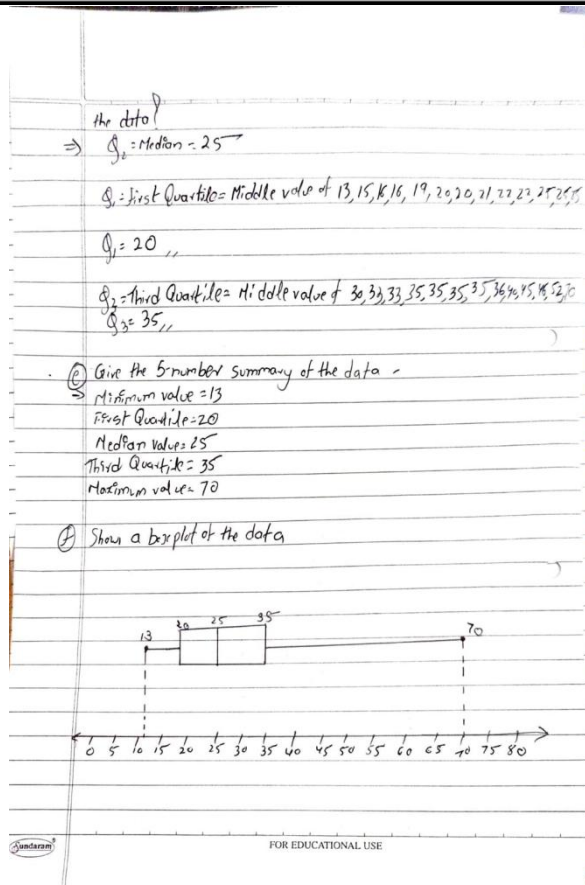 the data?
⇒ Q₂ = Median = 25
Q₁ = First Quartile = Middle value of 13, 15, 16, 16, 19, 20, 20, 21, 22, 22, 25, 25, 25
Q₁ = 20 ,,
Q₃ = Third Quartile = Middle value of 30, 33, 33, 35, 35, 35, 35, 36, 40, 45, 46, 52, 70
Q₃ = 35 ,,
(e) Give the 5-number summary of the data -
⇒ Minimum value = 13
First Quartile = 20
Median value = 25
Third Quartile = 35
Maximum value = 70
(f) Show a boxplot of the data
13 20 25 35 70
0 5 10 15 20 25 30 35 40 45 50 55 60 65 70 75 80
Sundaram
FOR EDUCATIONAL USE